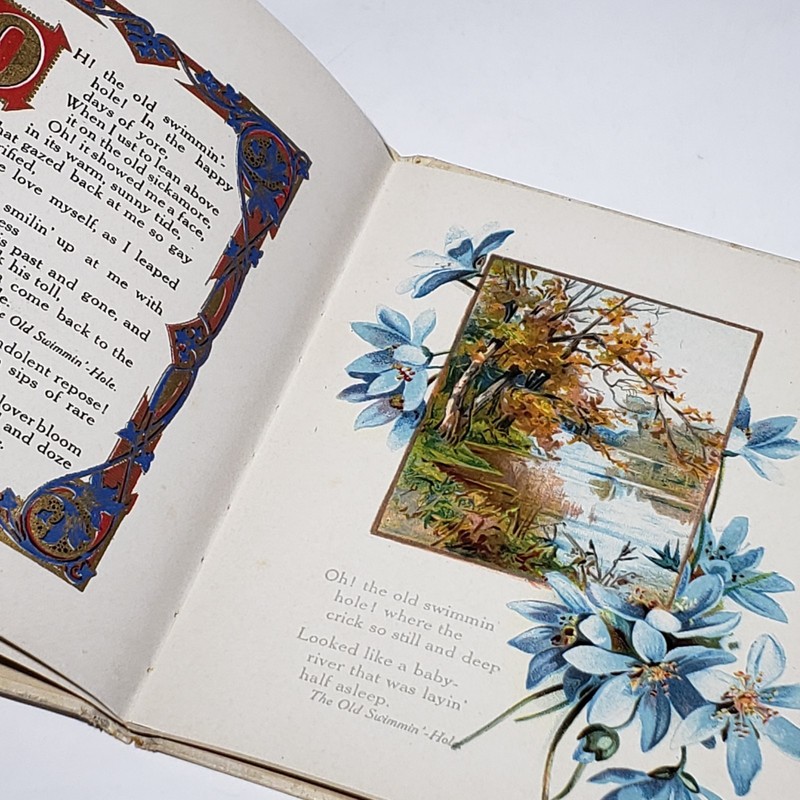 O
H! the old swimmin'-
hole! In the happy
days of yore,
When I ust to lean above
it on the old sickamore,
Oh! it showed me a face,
in its warm sunny tide,
gazed back at me so gay
love myself, as I leaped
smilin' up at me with
past and gone, and
his toll,
come back to the
Old Swimmin'-Hole.
repose!
sips of rare
bloom
and doze
Oh! the old swimmin
hole! where the
crick so still and deep
Looked like a baby-
river that was layin'
half asleep.
The Old Swimmin'-Hole